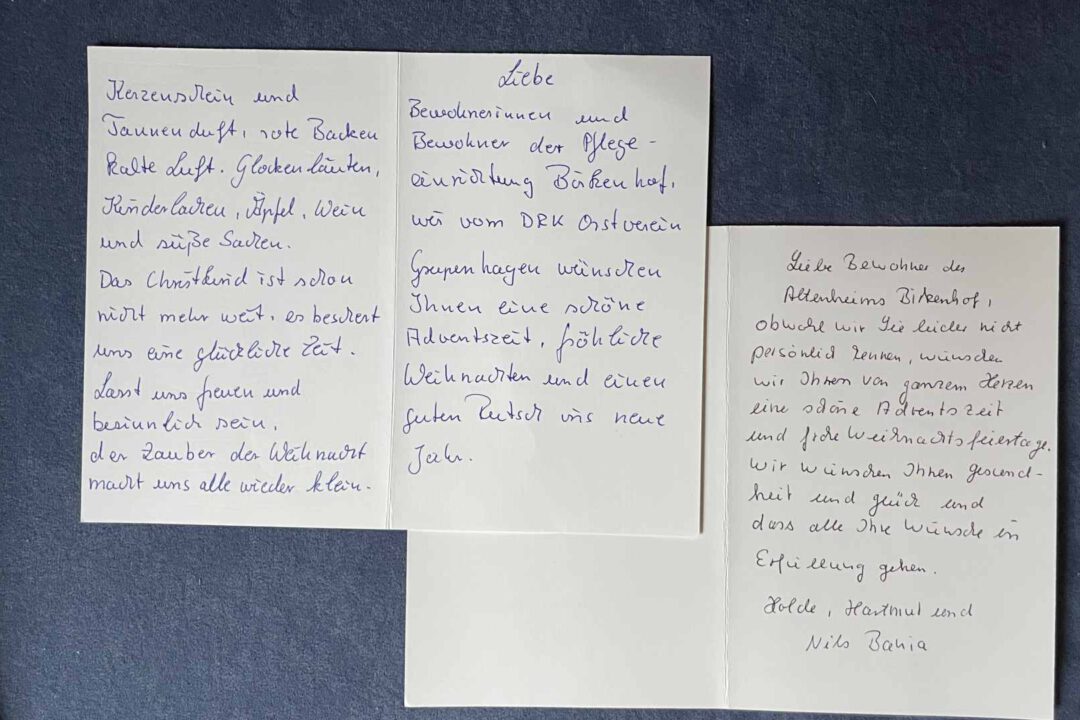 Kerzenschein und
Tannenduft, rote Backen
kalte Luft. Glockenläuten,
Kinderlachen, Äpfel, Wein
und süße Sachen.
Das Christkind ist schon
nicht mehr weit, es beschert
uns eine glückliche Zeit.
Lasst uns freuen und
besinnlich sein,
der Zauber der Weihnacht
macht uns alle wieder klein.
Liebe
Bewohnerinnen und
Bewohner der Pflege-
einrichtung Birkenhof,
wir vom DRK Ortsverein
Grupenhagen wünschen
Ihnen eine schöne
Adventszeit, fröhliche
Weihnachten und einen
guten Rutsch ins neue
Jahr.
Liebe Bewohner des
Altenheims Birkenhof,
obwohl wir Sie leider nicht
persönlich kennen, wünschen
wir Ihnen von ganzem Herzen
eine schöne Adventszeit
und frohe Weihnachtsfeiertage.
Wir wünschen Ihnen Gesund-
heit und Glück und
dass alle Ihre Wünsche in
Erfüllung gehen.
Holde, Hartmut und
Nils